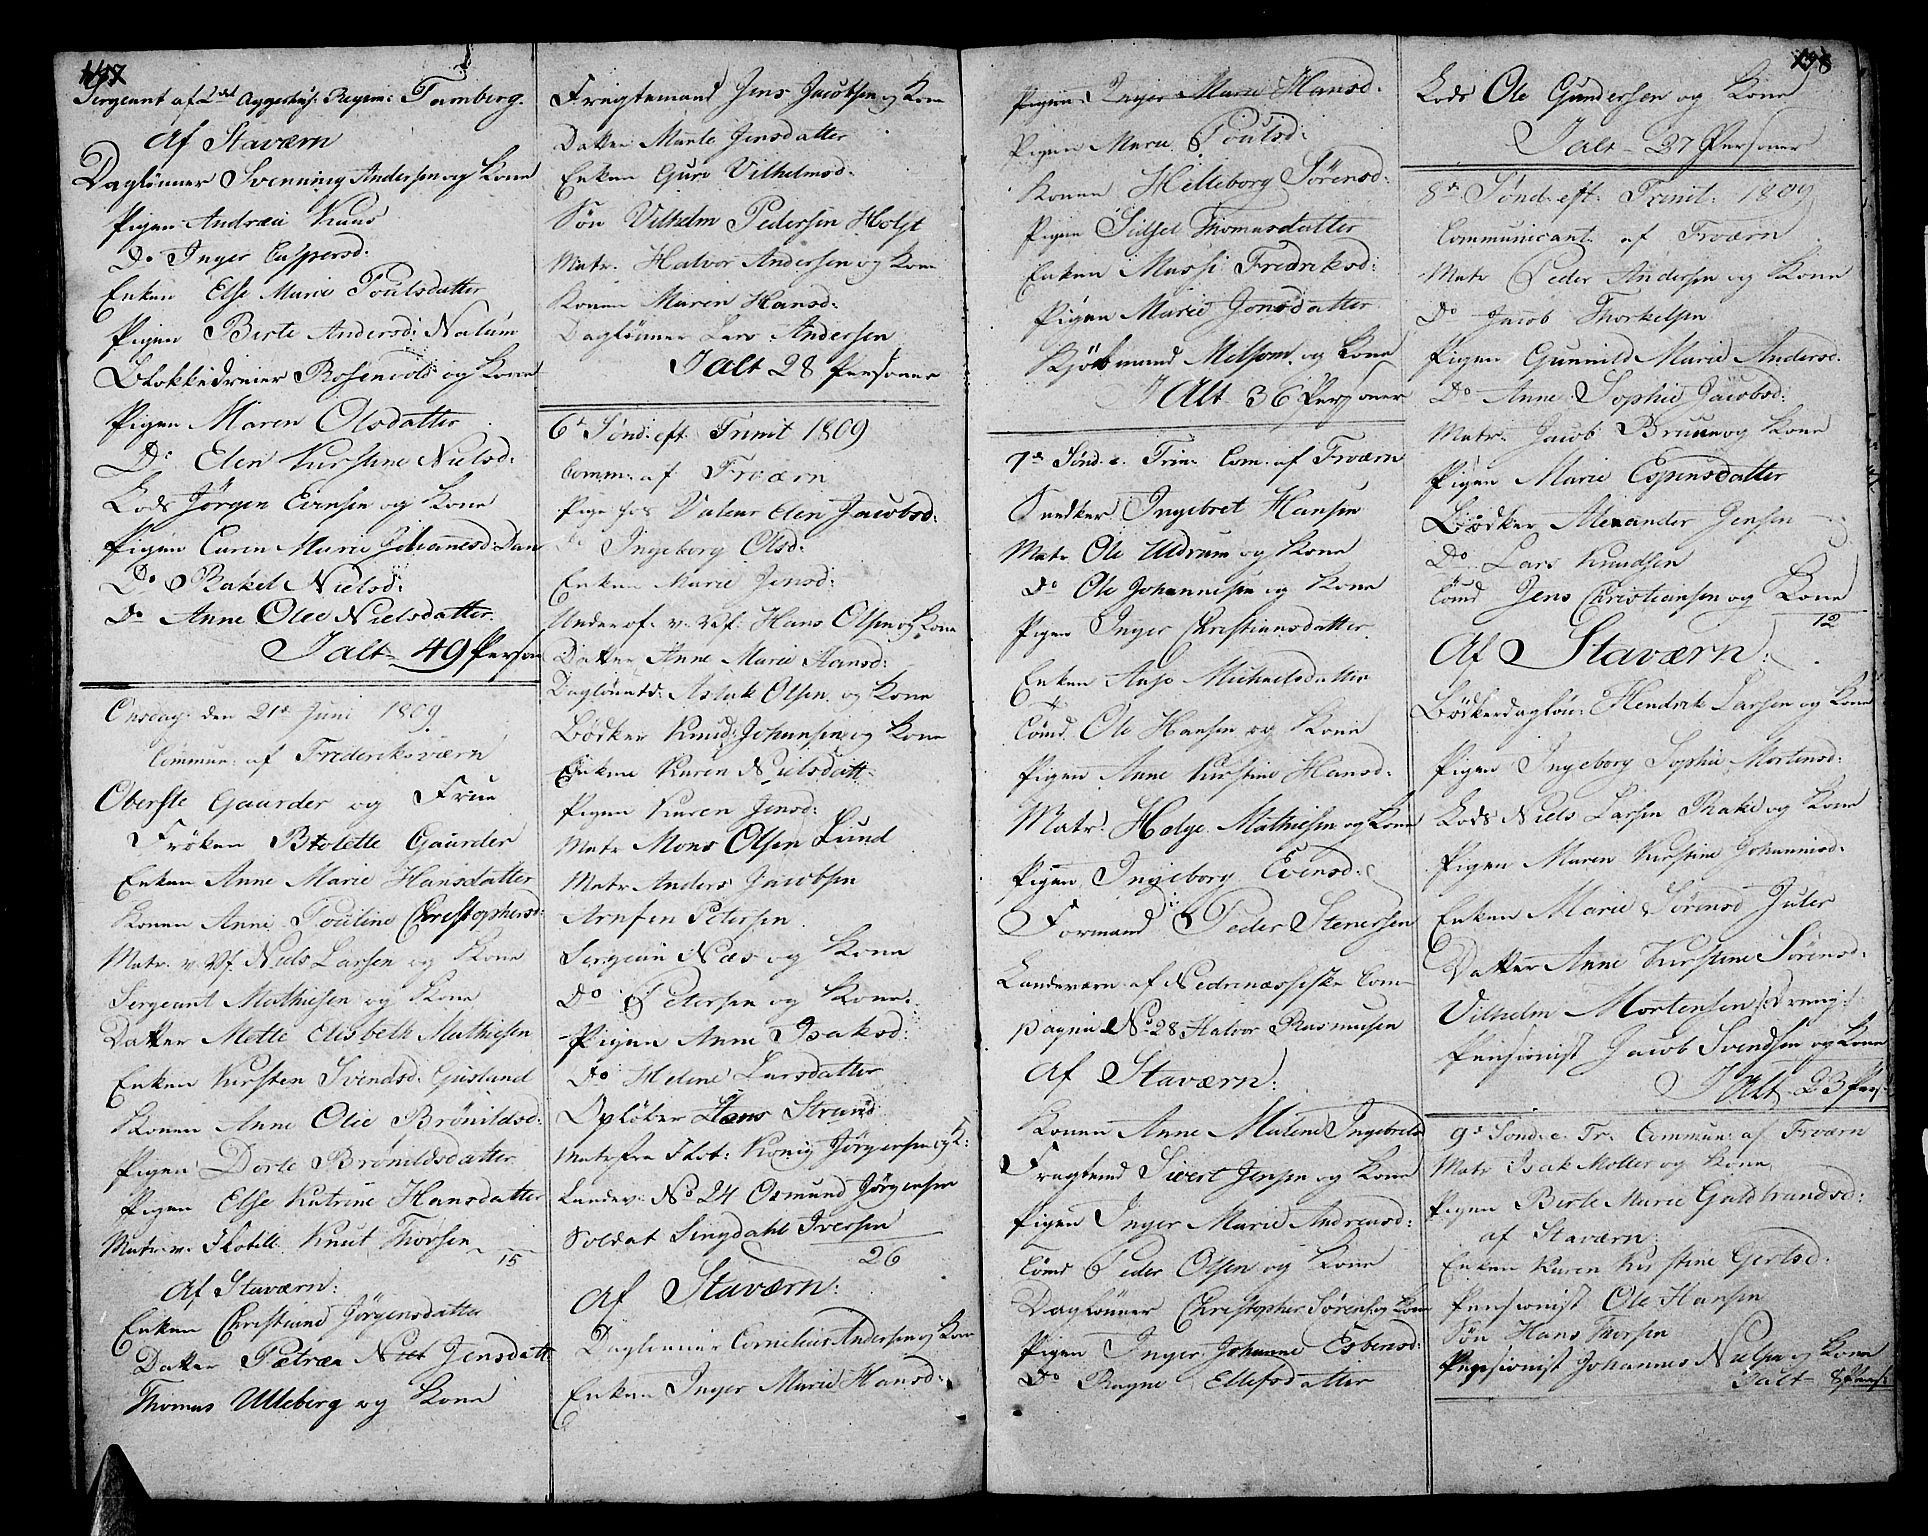 Sergeant af 2det Aggershuus: Regim: Tamberg.
Af Staværn
Daglønner Svenning Andersen og Kone
Pigen Andrea
Do Inger Caspersd:
Enken Else Marie Poulsdatter
Pigen Birte Andersd: Nalum
Blokkedreier Rosenvold og Kone
Pigen Maren Olsdatter
Do Elen Kirstine Nielsd:
Lods Jørgen Evensen og Kone
Pigen Caren Marie Johannesd:
Do Rakel Nielsd:
Do Anne Olee Nielsdatter.
I alt 49 Person
Onsdag den 21de Juni 1809
Commun: af Frideriksværn
Oberste Gaarder og Frue
Frøken Bolette Gaarder
Enken Anne Marie Hansdatter
Konen Anne Pouline Christophersd:
Matr. v. Vf. Niels Larsen og Kone
Sergeant Mathiesen og Kone
Datter Mette Elisbeth Mathiesen
Enken Kirsten Svendsd: Guslund
Konen Anne Olie Brønildsd:
Pigen Dorte Brønildsdatter
Pigen Else Katrine Hansdatter
Matr. v. Flotill. Knut Thorsen
15
Af Staværn:
Enken Christiane Jørgensdatter
Datter Petrea Jensdatt:
Thomas Ulleberg og Kone
Fragtemand Jens Jacobsen og Kone
Datter Marte Jensdatter
Enken Guro Vilhelmsd:
Søn Vilhelm Pedersen Holst
Matr. Halvor Andersen og Kone
Konen Maren Hansd:
Daglønner Lars Andersen
I alt 28 Personer
6te Sønd: eft: Trinit 1809
Comm: af Frværn
Pige hos Valeur Elen Jacobsd:
Do Ingeborg Olsd:
Enken Marie Jensd:
Underof. v. Vf: Hans Olsen og Kone
Datter Anne Marie Hansd:
Dagløntr: Aslak Olsen og Kone
Bødker Knud Johansen og Kone
Enken Karen Nielsdatt:
Pigen Karen Jensd:
Matr Mons Olsen Lund
Matr Anders Jacobsen
Arnsen Petersen
Sergean Næs og Kone
Do Petersen og Kone.
Pigen Anne Isaksd:
Do Helene Larsdatter
Opløber Hans Strand
Matr fra Flot: Konig Jørgersen og K:
Landev: No 24 Osmund Jørgensen
Soldat Singdahl Iversen
26
Af Staværn:
Daglønner Cornelius Andersen og Kone
Enken Inger Marie Hansd:
Pigen Inger Marie Hansd:
Pigen Maria Poulsd:
Konen Helleborg Sørensd:
Pigen Sidsel Thomasdatter
Enken Massi Fredriksd:
Pigen Marie Jonsdatter
Kjøbmand Milsom. og Kone
I Alt 36 Personer
7de Sønd. e. Trin. Com. af Frværn
Snedker Ingebret Hansen
Matr Ole Uldrum og Kone
Do Ole Johannesen og Kone
Pigen Inger Christiansdatter.
Enken Aase Michaelsdatter
Tømd. Ole Hansen og Kone
Pigen Anne Kirstine Hansd:
Matr. Helge Mathiesen og Kone
Pigen Ingeborg Evensd:
Formand Peder Stenersen
Landeværn af Nedrenæssiske Com-
pagnie No 28 Halvor Rasmusen
Af Staværn:
Konen Anne Malene Ingebretsd
Fragtemd Sivert Jensen og Kone
Pigen Inger Marie Andreasd:
Tømd Peder Olsen og Kone
Dagløner Christopher Sørens. og Kone
Pigen Inger Johanne Esbensd:
Do Ragne Ellefsdatter
198
Lods Ole Gundersen og Kone
I alt 27 Personer
8de Sønd: eft: Trinit: 1809
Communicant. af Frværn
Matr Peder Andersen og Kone
Do Jacob Thorkelsen
Pigen Gunnild Marie Andersd.
Do Anne Sophie Jacobsd:
Matr. Jacob Bruun og Kone
Pigen Marie Espensdatter
Bødker Alexander Jensen
Do Lars Knudsen
Tømd Jens Christiansen og Kone
12
Af Staværn:
Bødkerdagløn: Hendrik Larsen og Kone
Pigen Ingeborg Sophie Mortensd:
Lods Niels Larsen Rake og Kone
Pigen Maren Kirstine Johannisd:
Enken Marie Sørensd Juler
Datter Anne Kirstine Sørensd:
Vilhelm Mortensen /:Dreng:/
Pensionist Jacob Svendsen og Kone
I Alt 23 Pers:
9de Sønd: e. Tr. Commun: af Frværn
Matr Isak Moller og Kone
Pigen Birte Marie Guldbrandsd:
af Staværn:
Enken Karen Kirstine Gertsd:
Pensionist Ole Hansen
Søn Hans Thorsen
Pensionist Johannes Nielsen og Kone
I alt 8 Pers: